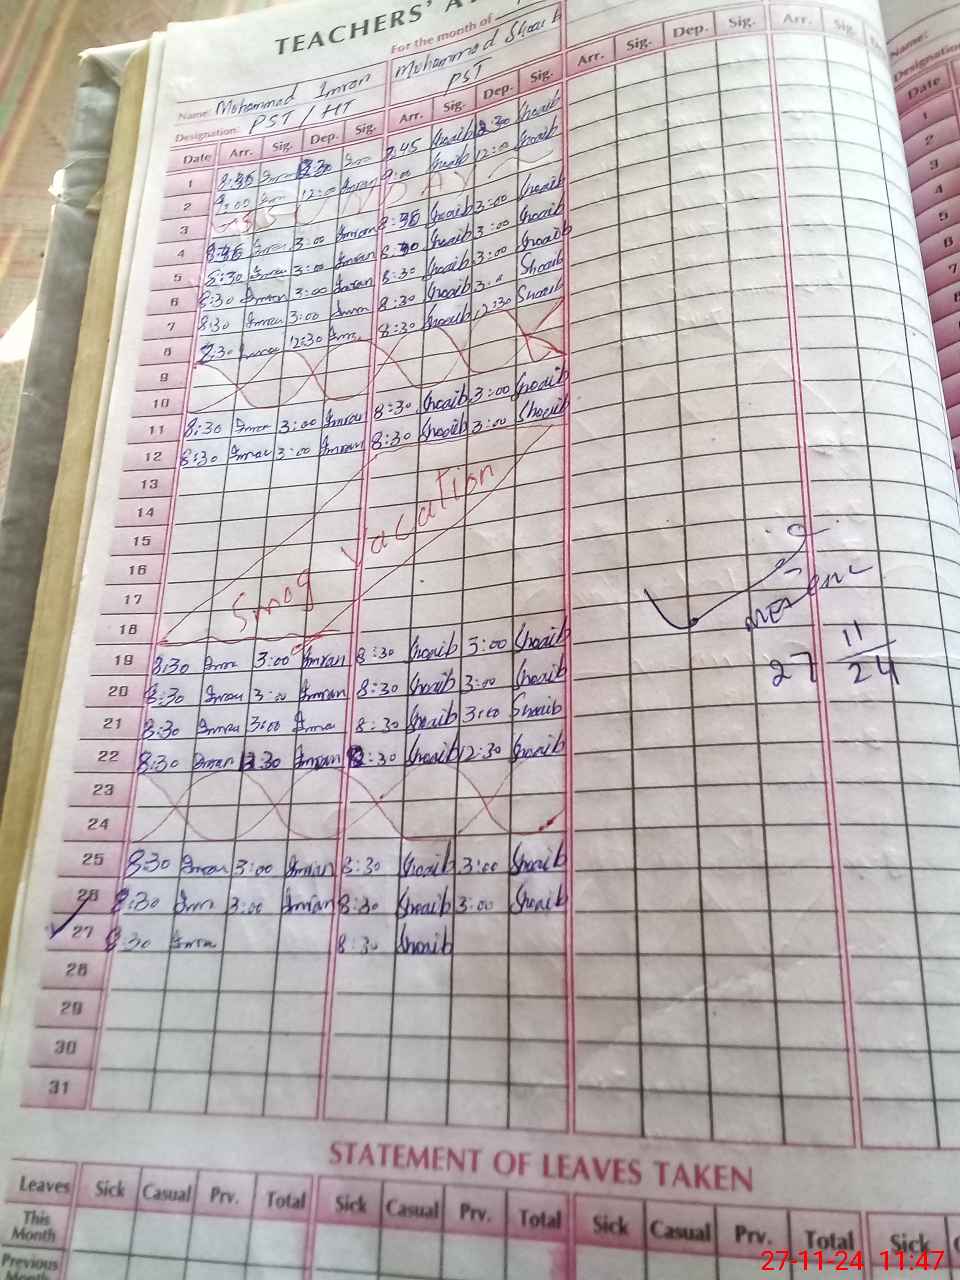 TEACHERS' A
For the month of
Name: Mohammad Imran Mohammad Shoaib
Designation: PST / HT PST
Date Arr. Sig. Dep. Sig. Arr. Sig. Dep. Sig. Arr. Sig. Dep. Sig. Arr. Sig.
1 Shoaib Shoaib
2 9:00 12:00 Imran Shoaib 12:00 Shoaib
3 SUNDAY
4 3:00 Imran Shoaib 3:00 Shoaib
5 8:30 Imran 3:00 Imran 8:30 Shoaib 3:00 Shoaib
6 8:30 Imran 3:00 Imran 8:30 Shoaib 3:00 Shoaib
7 8:30 Imran 3:00 Imran 8:30 Shoaib Shoaib
8 8:30 Imran 12:30 8:30 Shoaib 12:30 Shoaib
9
10
11 8:30 Imran 3:00 Imran 8:30 Shoaib 3:00 Shoaib
12 8:30 Imran 3:00 Imran 8:30 Shoaib 3:00 Shoaib
13
14
15
16
17
18
Smog Vacation
19 8:30 3:00 Imran 8:30 Shoaib 3:00 Shoaib
20 8:30 Imran 3:00 Imran 8:30 Shoaib 3:00 Shoaib
21 8:30 Imran 3:00 8:30 Shoaib 3:00 Shoaib
22 8:30 Imran 12:30 Imran 8:30 Shoaib 12:30 Shoaib
23
24
25 8:30 Imran 3:00 Imran 8:30 Shoaib 3:00 Shoaib
26 8:30 3:00 Imran 8:30 Shoaib 3:00 Shoaib
27 8:30 Imran 8:30 Shoaib
28
29
30
31
27 11/24
STATEMENT OF LEAVES TAKEN
Leaves Sick Casual Prv. Total Sick Casual Prv. Total Sick Casual Prv. Total Sick
This Month
Previous
Name:
Designation
Date
1
2
3
4
5
6
7
27-11-24 11:47